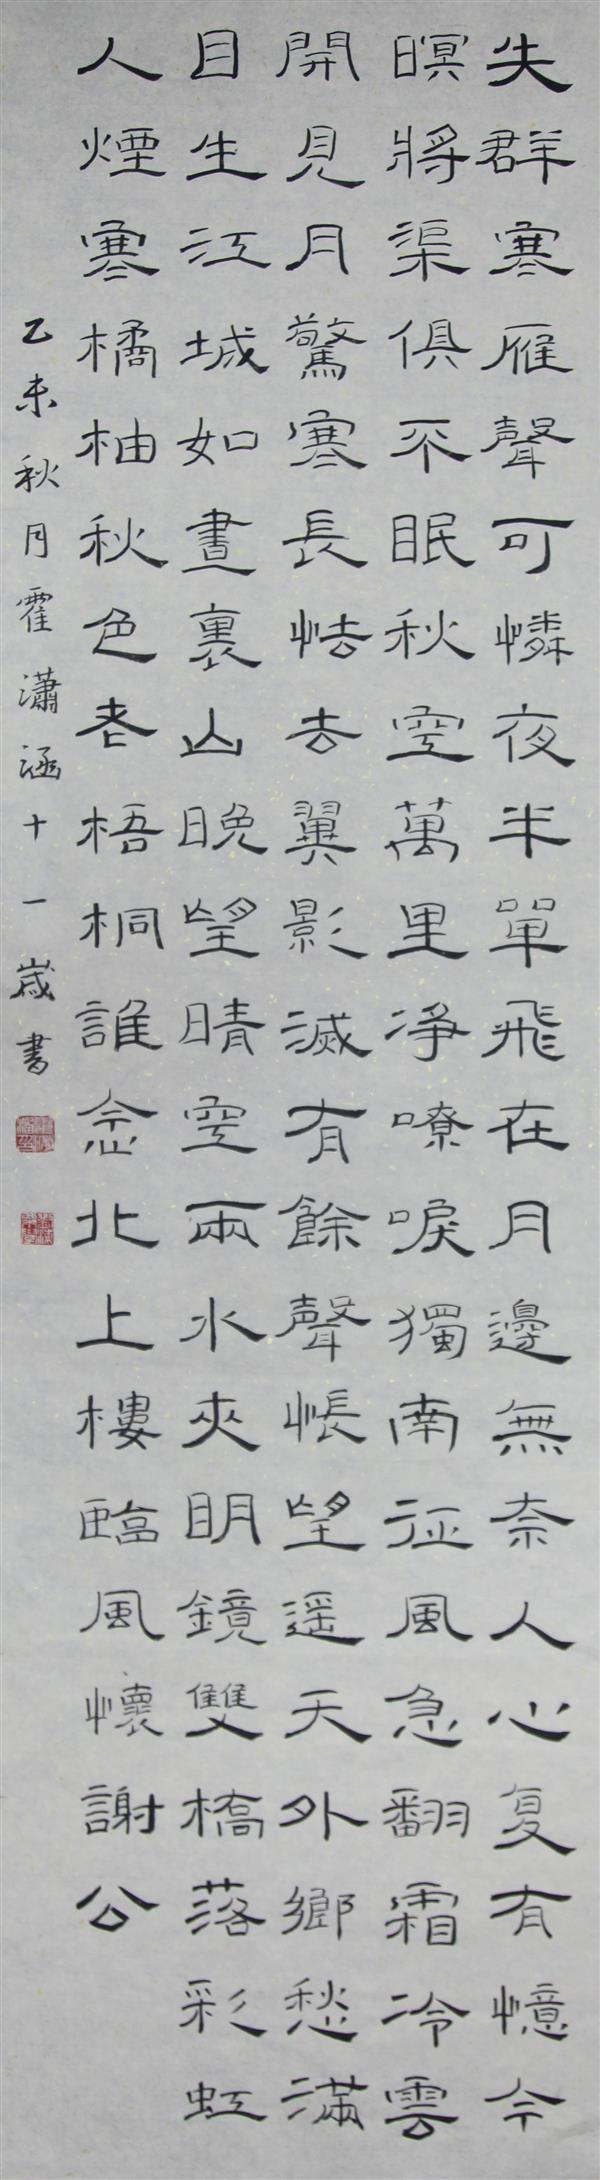 失群寒雁聲可憐夜半單飛在月邊無奈人心复有憶今
暝將渠俱不眠秋空萬里净嘹唳獨南征風急翻霜冷雲
開見月驚寒長怯去翼影滅有餘聲悵望遥天外鄉愁滿
目生江城如畫裏山晚望晴空兩水夾明鏡雙橋落彩虹
人煙寒橘柚秋色老梧桐誰念北上樓臨風懷謝公
乙未秋月霍瀟涵十一歲書